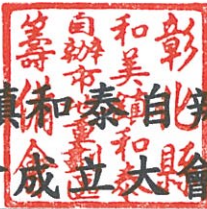 彰化縣
和美鎮和泰
自辦市地重劃區
籌備會
鎮和泰自辦
成立大會